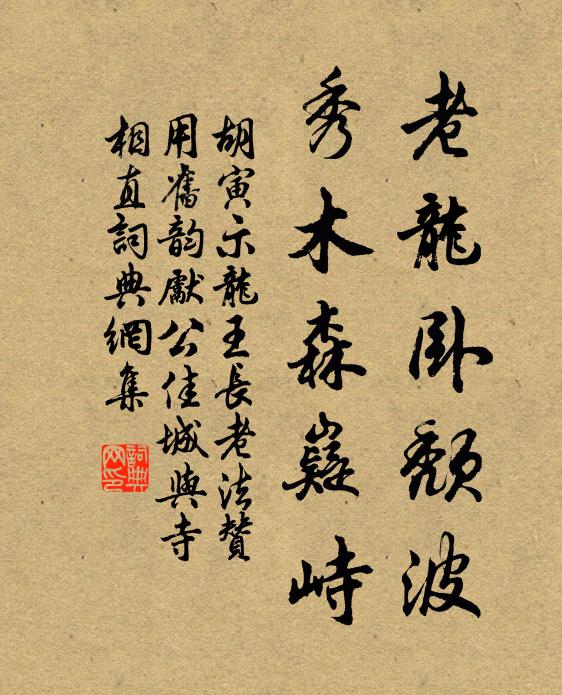 老龍卧頹波
秀木森嶷峙
胡寅示龍王長老法贊
用舊韵獻公佳城與寺
相直詞典網集
詞典网印